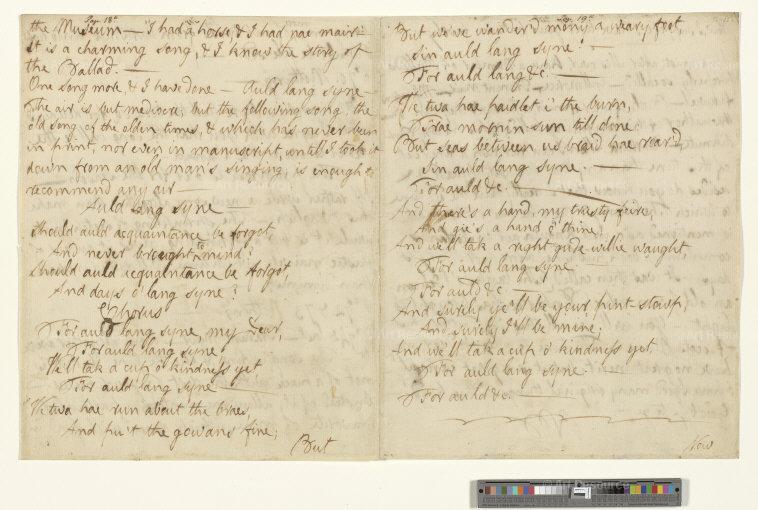 the Museum — "I had a horse, & I had nae mair" —
it is a charming song, & I know the story of
the Ballad. —
One song more, & I have done — Auld lang syne —
The air is but mediocre; but the following song, the
old song of the olden times, & which has never been
in print, nor even in manuscript, untill I took it
down from an old man's singing, is enough to
recommend any air —
Auld lang syne
Should auld acquaintance be forgot,
And never brought to mind?
Should auld acquaintance be forgot,
And days o' lang syne?
Chorus
For auld lang syne, my Dear,
For auld lang syne,
We'll tak a cup o' kindness yet
For auld lang syne —
We twa hae run about the braes,
And pu't the gowans fine;
But
But we've wander'd mony a weary foot,
Sin auld lang syne. —
For auld lang &c. —
We twa hae paidlet i' the burn,
Frae mornin sun till dine:
But seas between us braid hae roar'd,
Sin auld lang syne. —
For auld &c. —
And there's a hand, my trusty feire,
And gie's a hand o' thine;
And we'll tak a right gude willie waught
For auld lang syne —
For auld &c —
And surely ye'll be your pint-stowp,
And surely I'll be mine;
And we'll tak a cup o' kindness yet,
For auld lang syne.
For auld &c. —
Now